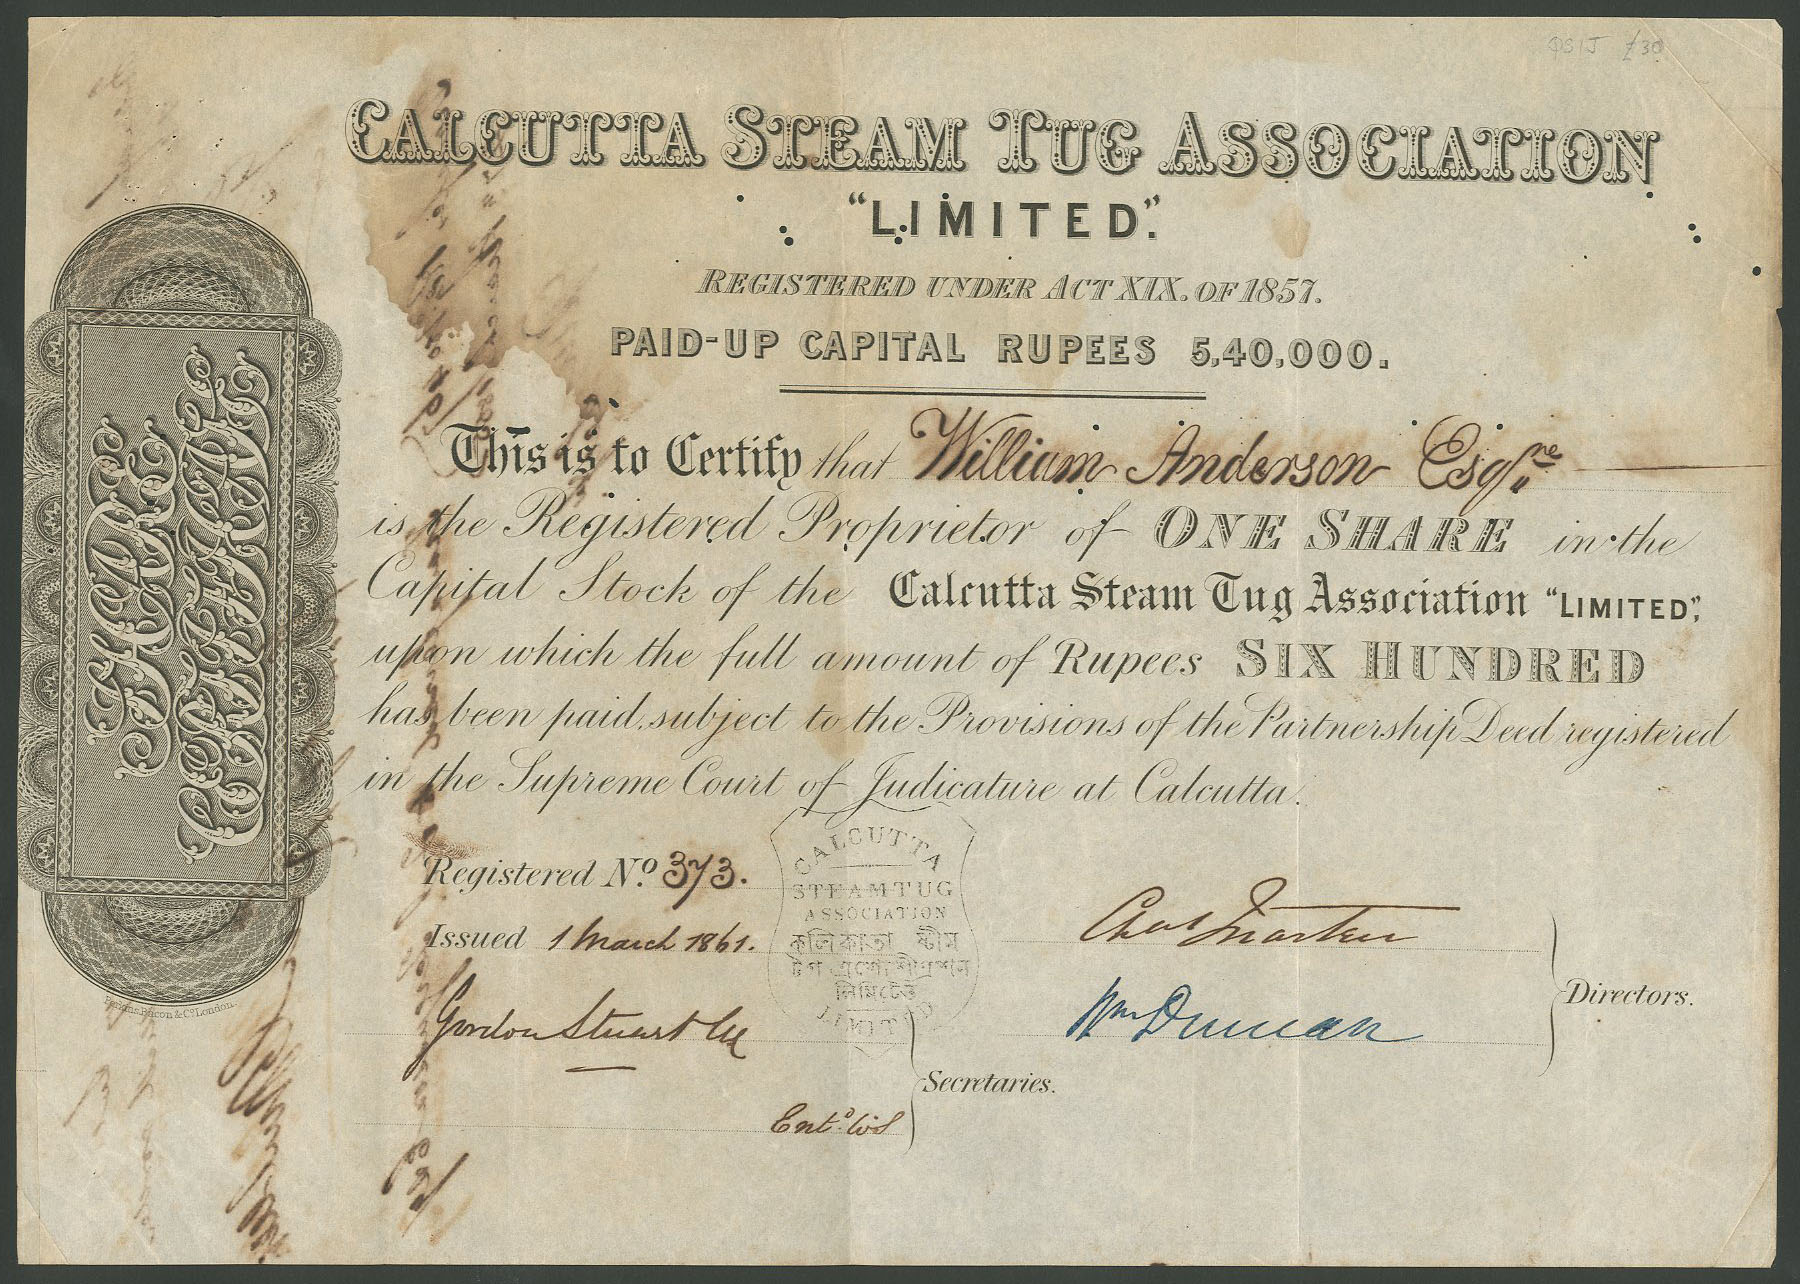 CALCUTTA STEAM TUG ASSOCIATION
"LIMITED".
REGISTERED UNDER ACT XIX. OF 1857.
PAID-UP CAPITAL RUPEES 5,40,000.
This is to Certify that William Anderson Esqre
is the Registered Proprietor of ONE SHARE in the
Capital Stock of the Calcutta Steam Tug Association "LIMITED",
upon which the full amount of Rupees SIX HUNDRED
has been paid, subject to the Provisions of the Partnership Deed registered
in the Supreme Court of Judicature at Calcutta.
Registered No. 373.
Issued 1 March 1861.
Gordon Stuart &Co
Secretaries.
Wm Duncan
Directors.
CALCUTTA
STEAM TUG
ASSOCIATION
কলিকাতা ষ্টীম
টগ
লিমিটেড
LIMITED
SHARE
CERTIFICATE
Perkins, Bacon & Co. London.
£30